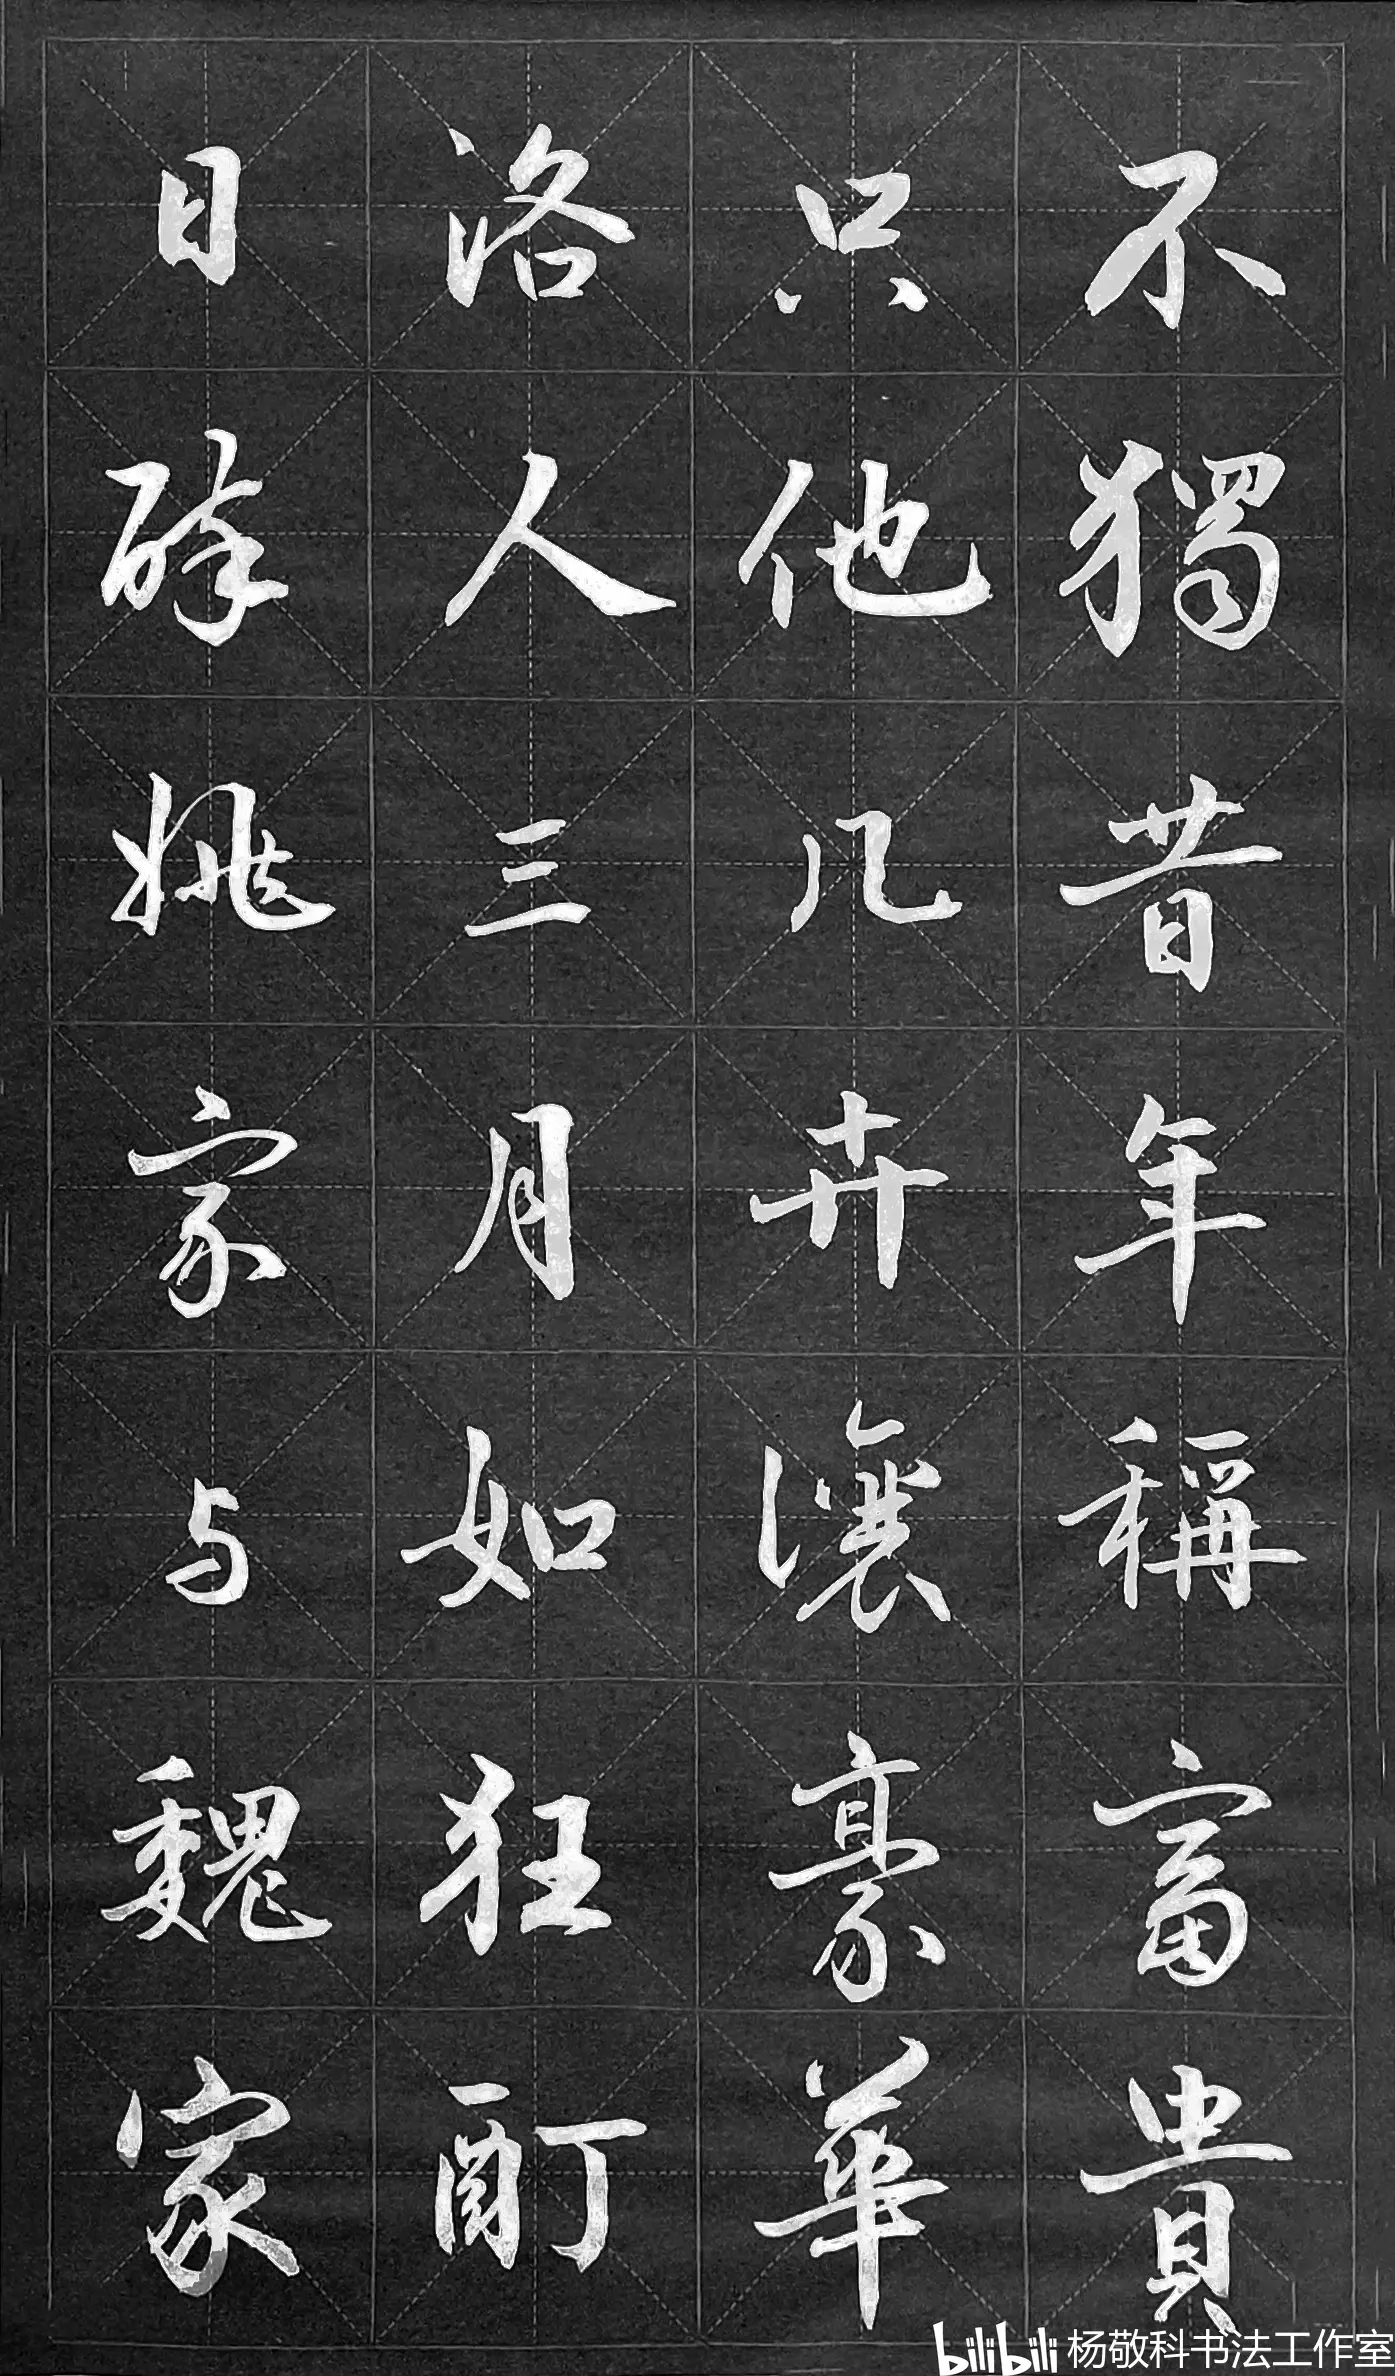 不獨昔年稱富貴
只他几卉瀼豪華
洛人三月如狂酊
日醉姚家与魏家
bilibili 杨敬科书法工作室